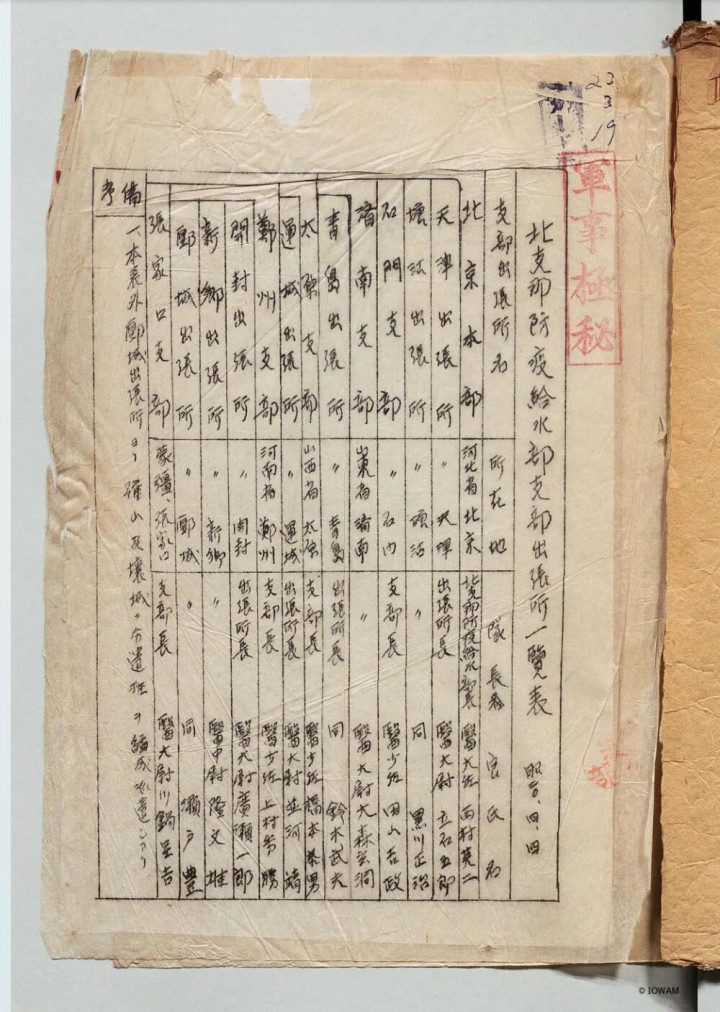 23
3
19
軍事極秘
北支那防疫給水部支部出張所一覧表 昭二〇、四、四
支部出張所名 所在地 隊長 官氏名
北京本部 河北省北京 北支那防疫給水部長 醫大佐 西村英二
天津出張所 〃 天津 出張所長 醫大尉 立石五郎
塘沽出張所 〃 塘沽 〃 同 黒川正治
石門支部 〃 石門 支部長 醫少佐 田山吉政
濟南支部 山東省濟南 〃 醫大尉 大森玄洞
青島出張所 〃 青島 出張所長 同 鈴木武夫
太原支部 山西省太原 支部長 醫少佐 橋本 男
運城出張所 〃 運城 出張所長 醫大尉 並河靖
鄭州支部 河南省鄭州 支部長 醫少佐 上村秀勝
開封出張所 〃 開封 出張所長 醫大尉 廣瀬一郎
新鄉出張所 〃 新鄉 〃 醫中尉 隆文雄
郾城出張所 〃 郾城 〃 同 瀬戸豊
張家口支部 蒙疆、張家口 支部長 醫大尉 川鍋 吉
備考 一、本表外郾城出張所ヨリ確山及襄城ニ分遣班ヲ編成派遣シアリ
© IOWAM